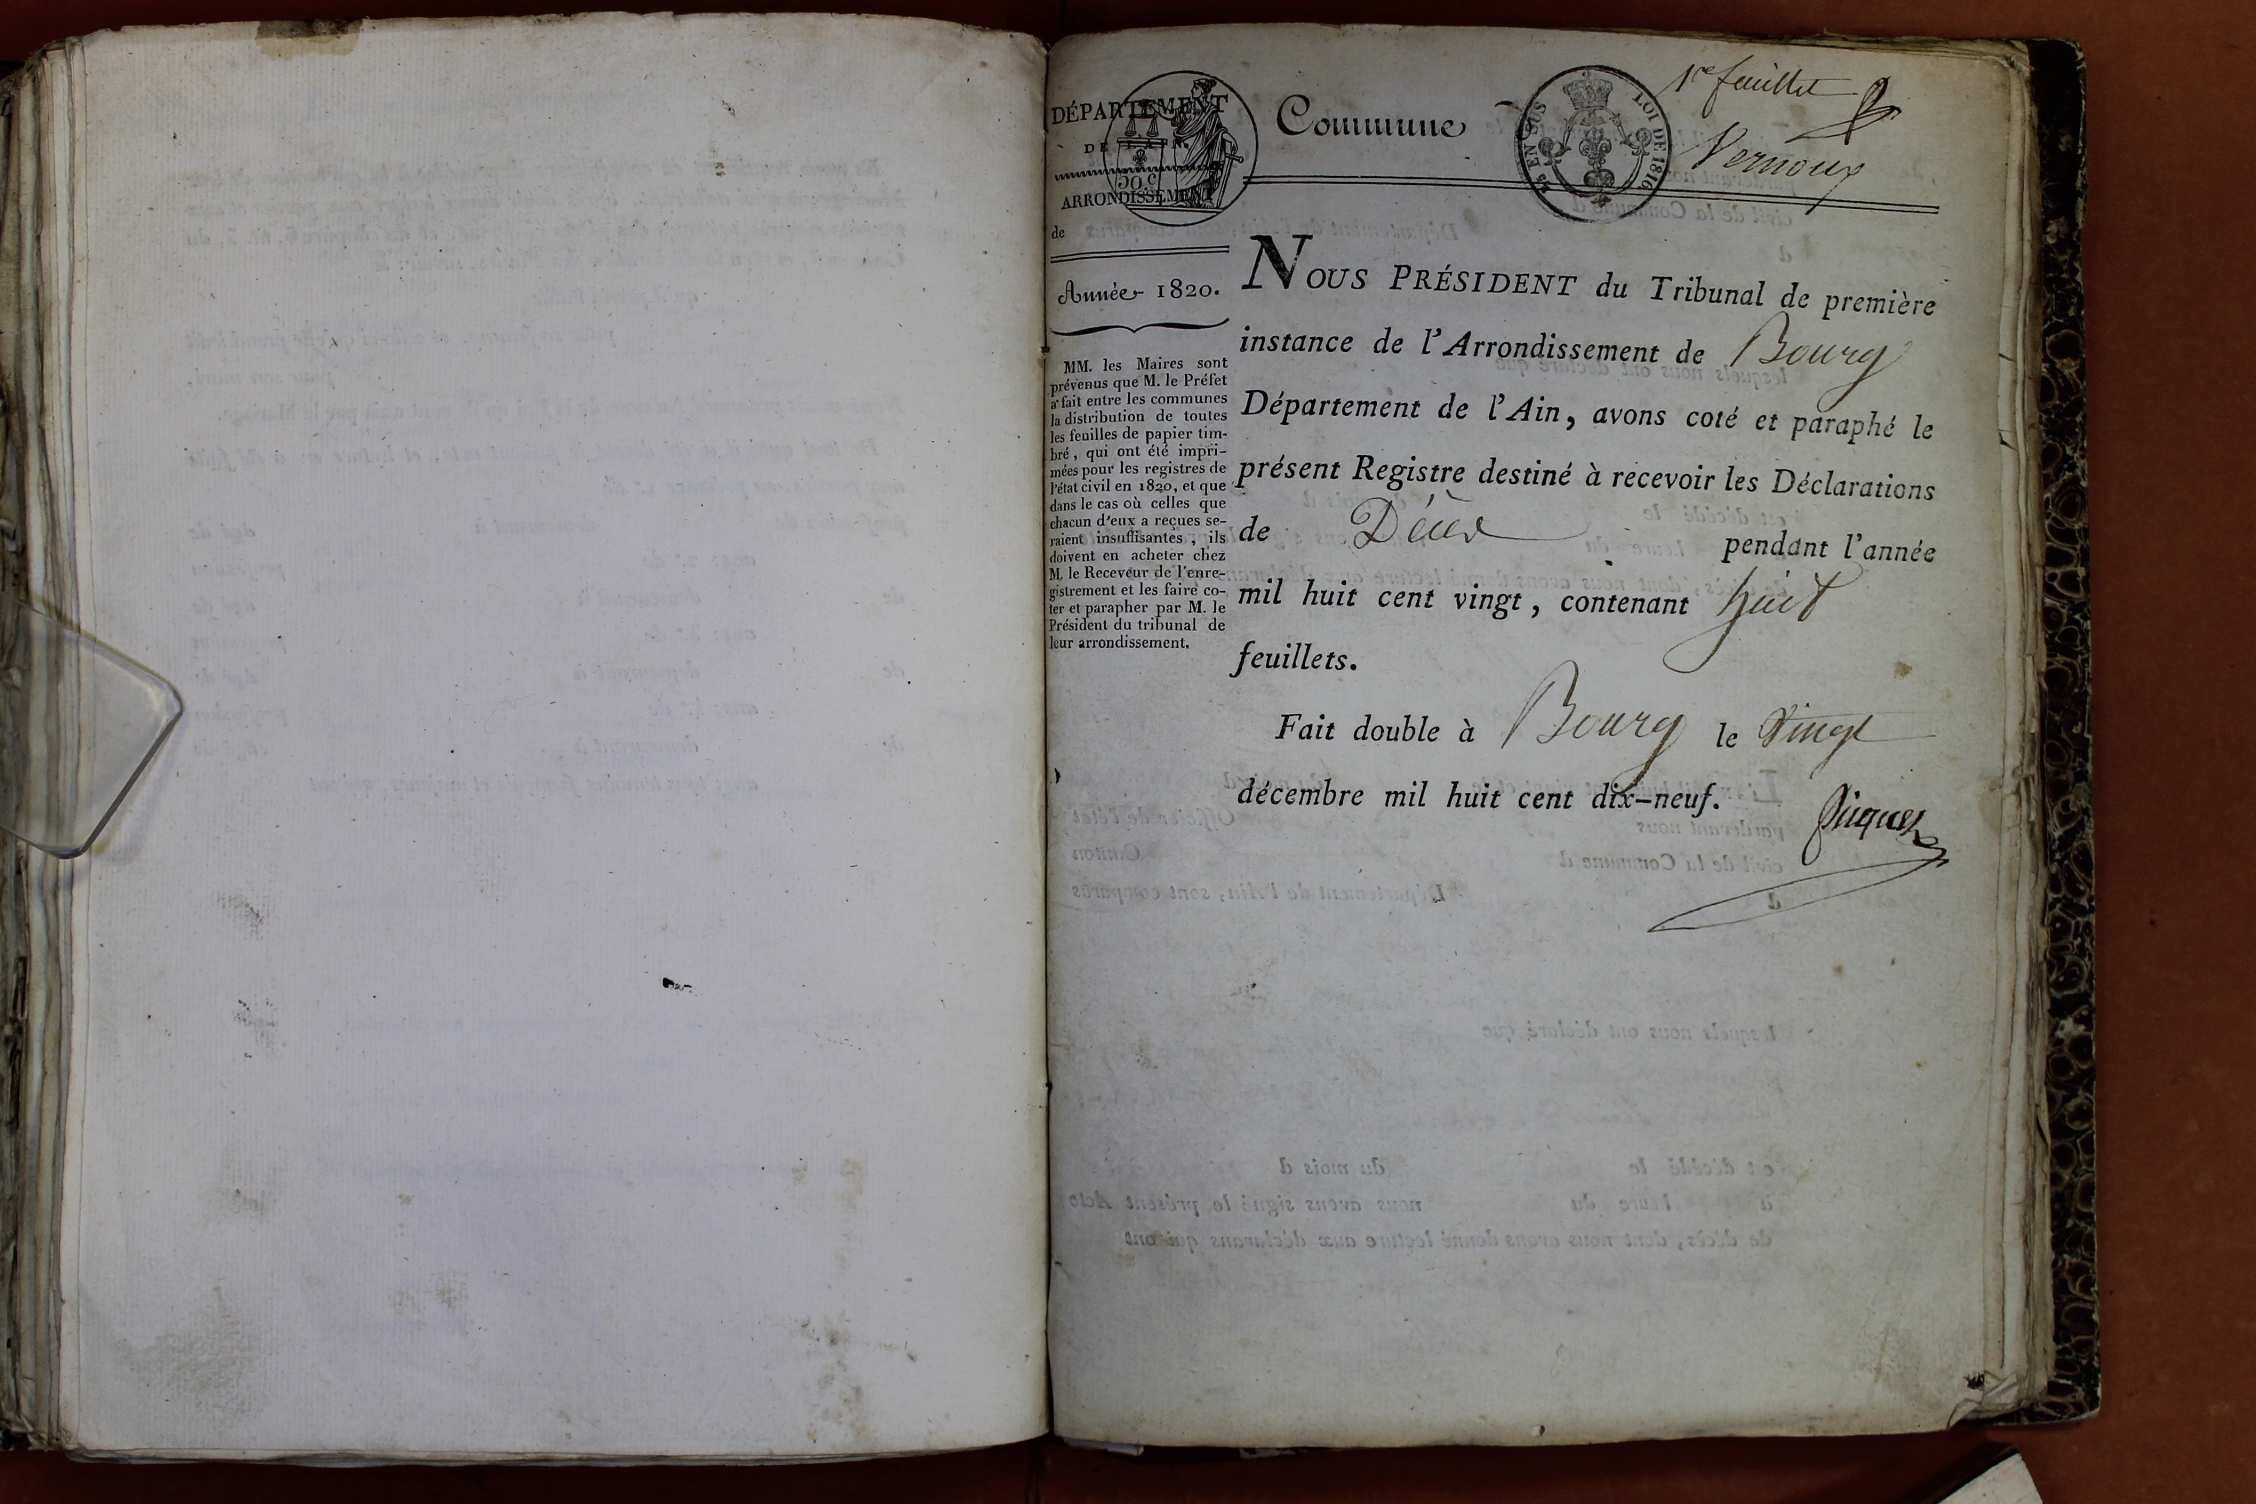 1re feuillet
DÉPARTEMENT
DE L'AIN.
50.c
ARRONDISSEMENT
de
Commune
EN SUS
LOI DE 1816
Vernoux
Année 1820.
MM. les Maires sont
prévenus que M. le Préfet
a fait entre les communes
la distribution de toutes
les feuilles de papier tim-
bré, qui ont été impri-
mées pour les registres de
l'état civil en 1820, et que
dans le cas où celles que
chacun d'eux a reçues se-
raient insuffisantes, ils
doivent en acheter chez
M. le Receveur de l'enre-
gistrement et les faire co-
ter et parapher par M. le
Président du tribunal de
leur arrondissement.
NOUS PRÉSIDENT du Tribunal de première
instance de l'Arrondissement de Bourg
Département de l'Ain, avons coté et paraphé le
présent Registre destiné à recevoir les Déclarations
de Décès pendant l'année
mil huit cent vingt, contenant huit
feuillets.
Fait double à Bourg le Vingt
décembre mil huit cent dix-neuf.